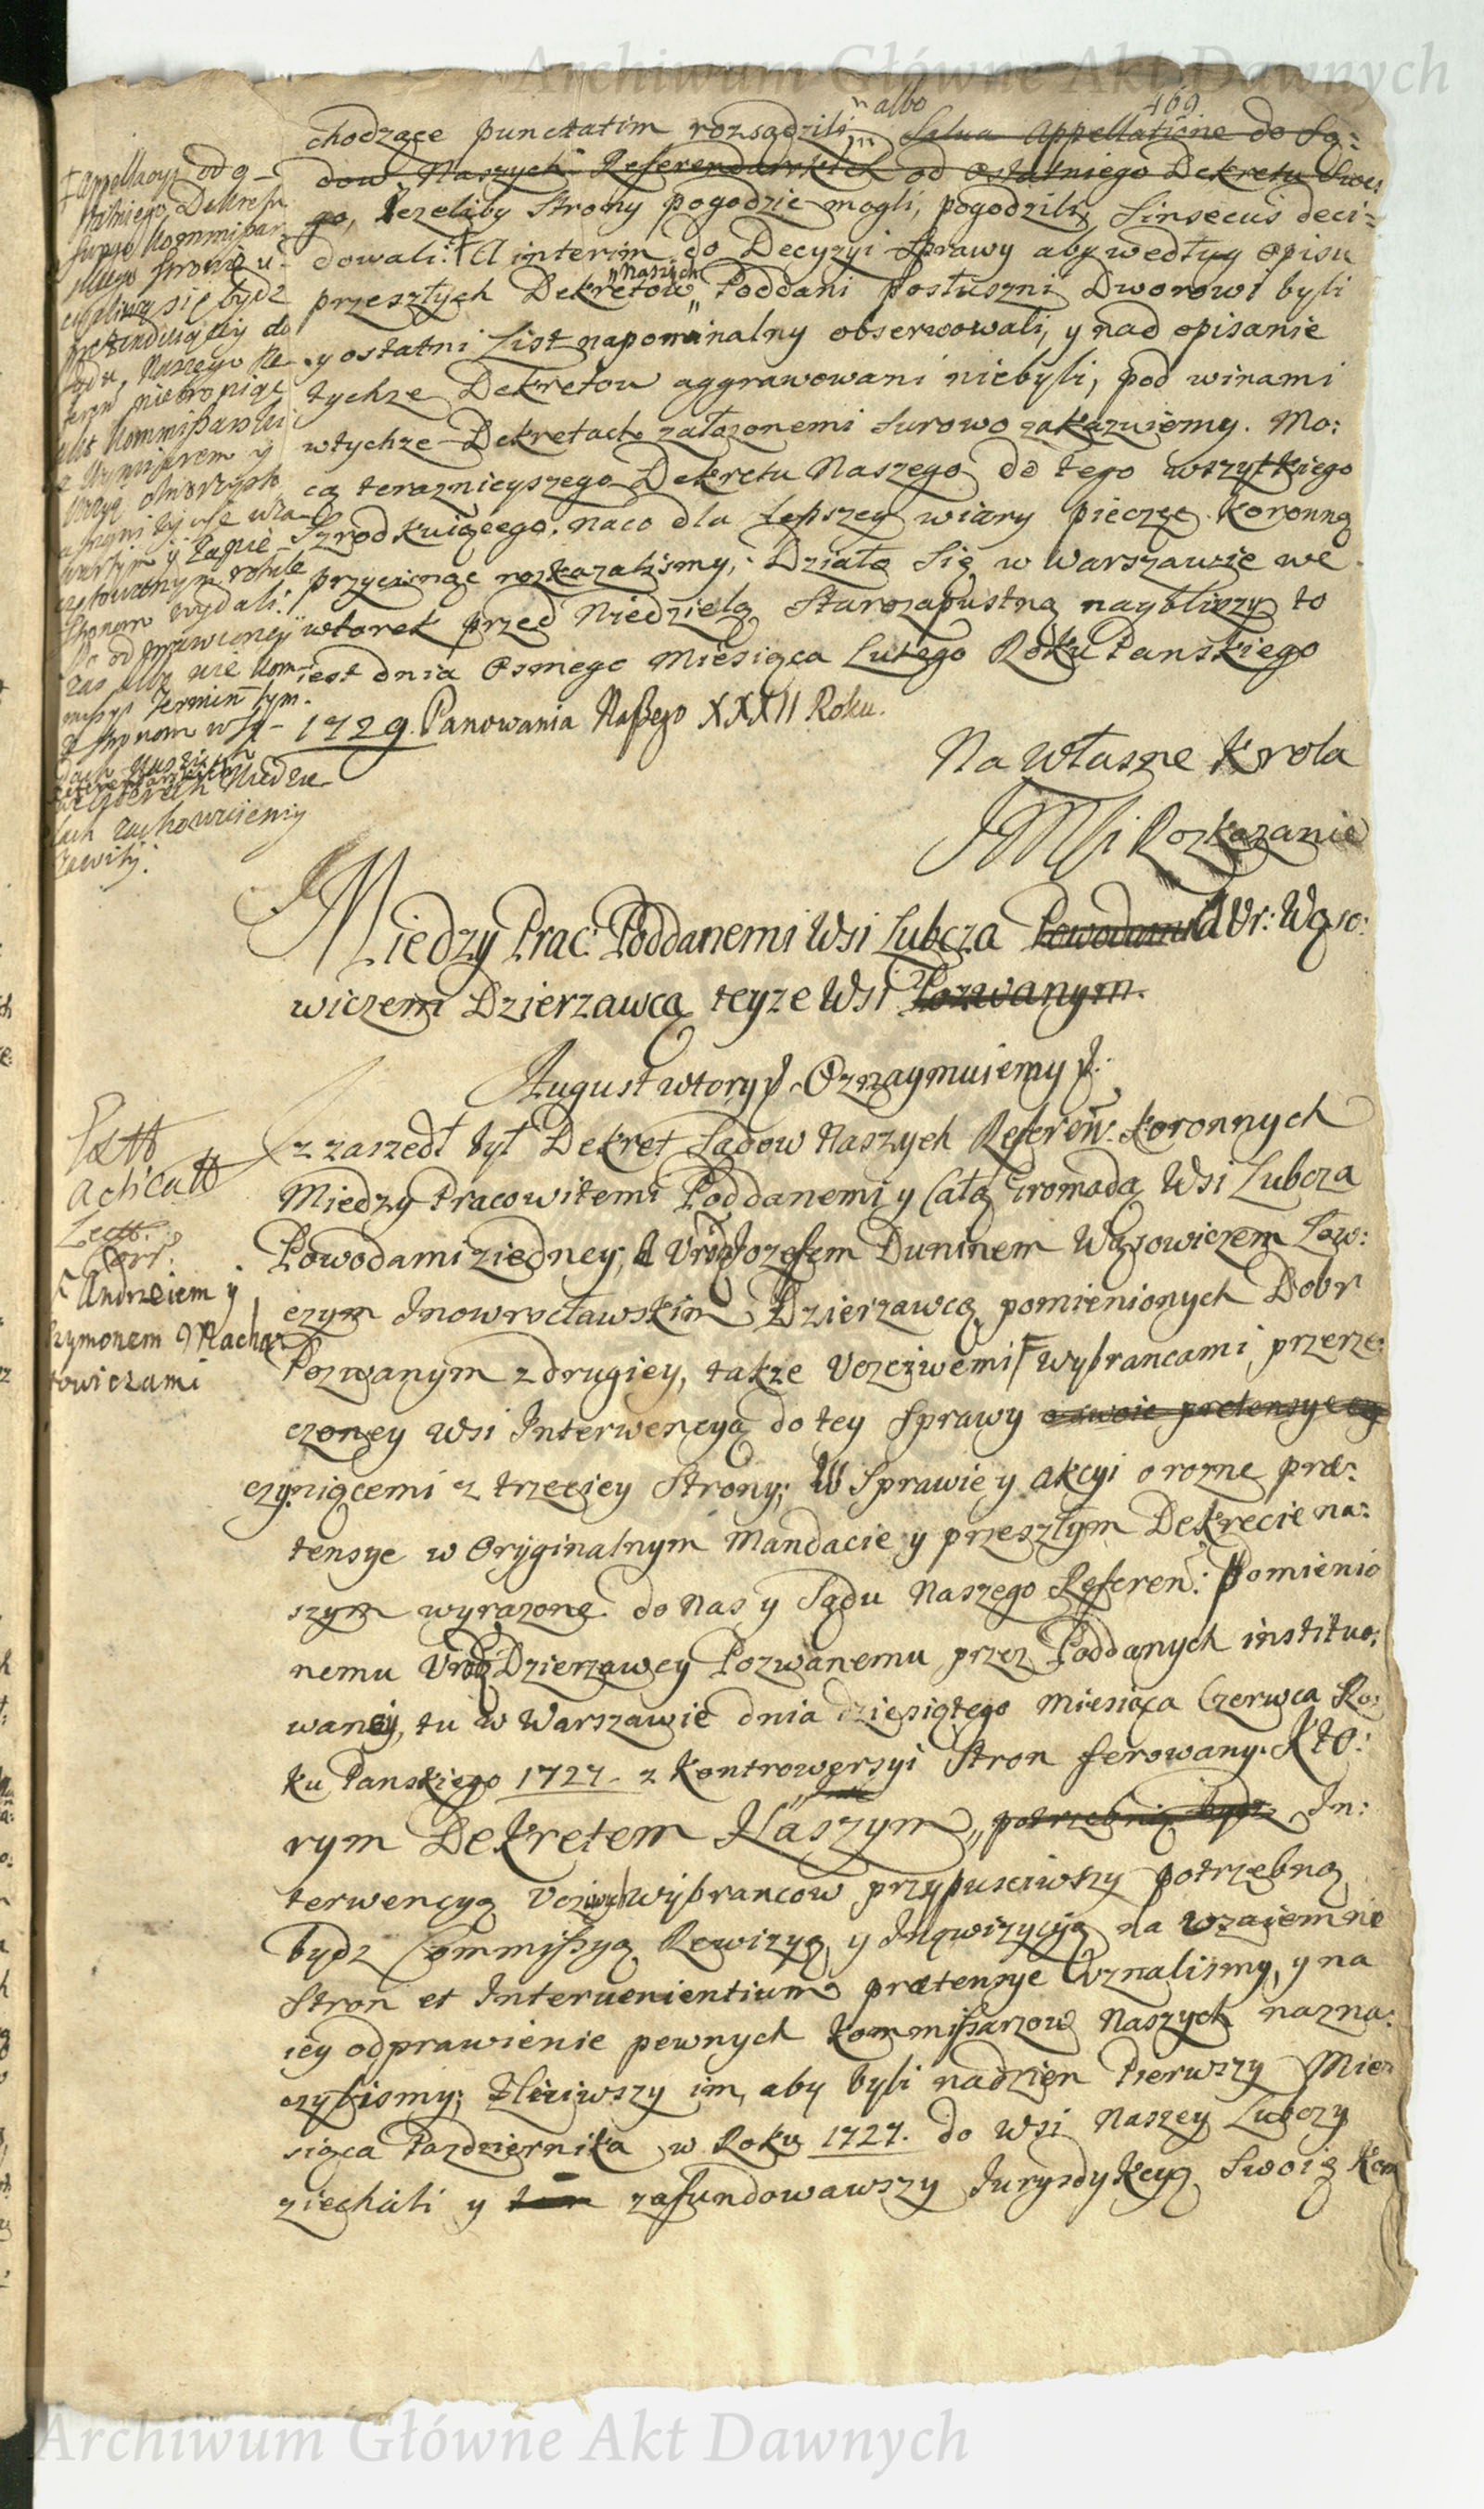 Archiwum Główne Akt Dawnych
469
chodzące punctatim rozsądzili albo ~~Salva Appellatione do Są:~~
~~dow Naszych Referendarskich od ostatniego Dekretu Swe:~~
~~go,~~ Jeżeliby Strony pogodzic mogli, pogodzili, sinsecus deci-
dowali: A interim do Decyzyi Sprawy aby według Opisu
przeszłych Dekretow Naszych Poddani Posłuszni Dworowi byli
y ostatni List napominalny obserwowali, y nad opisanie
tychze Dekretow aggrawowani niebyli, pod winami
wtychze Dekretach załozonemi surowo zakazuiemy. Mo:
cą teraznieyszego Dekretu Naszego do tego wszytkiego
Szrodkuiącego. Naco dla lepszey wiary pieczęc Koronną
przycisnąc rozkazalismy, Działo Się w Warszawie we
wtorek przed Niedzielą Starozapustną naybliszy to
iest dnia Osmego Miesiąca Lutego Roku Panskiego
1729. Panowania Naszego XXXII Roku.
† appellacyą od o-
statniego Dekretu
swego Kommissar-
skiego stronie u-
ciązliwą się bydz
praetenduiącey do
Sądu Naszego Re-
feren niebroniąc
akt Kommissarski
z Wymiarem y
wydali:
termin tym
stronom w Są-
dach Naszych
Referendarskich
zachowuiemy
zawity.
Na Własne Krola
JMSCi Rozkazanie
Miedzy Prac: Poddanemi Wsi Lubcza ~~Powodami~~ A Ur: Wąso:
wiczem Dzierzawcą teyze Wsi ~~Pozwanym.~~
August wtory p. Oznaymuiemy p.
z zaszedł był Dekret Sądow Naszych Referen. Koronnych
Miedzy Pracowitemi Poddanemi y Całą Gromadą Wsi Lubcza
Powodami ziedney, A Urodz Jozefem Duninem Wąsowiczem Łow:
czym Inowrocławskim Dzierzawcą pomienionych Dobr
Pozwanym zdrugiey, takze Uczciwemi Wybrancami przerze:
czoney Wsi Interwencyą do tey Sprawy ~~o swoie pretensye~~
czyniącemi z trzeciey Strony; W Sprawie y akcyi o rozne prae:
tensye w Oryginalnym Mandacie y przeszłym Dekrecie na:
szym wyrazone do Nas y Sądu Naszego Referen: Pomienio
nemu Urodz Dzierzawcy Pozwanemu przez Poddanych instituo:
waney, tu w Warszawie dnia dziesiątego Miesiąca Czerwca Ro:
ku Panskiego 1727. z Kontrowersyi Stron ferowany. Kto:
rym Dekretem Naszym ~~potrzebną bydz~~ In:
terwencyą Ucziwych Wybrancow przypusciwszy potrzebną
bydz Commissyą Rewizyą y Inqwizycyą na wzaiemne
Stron et Intervenientium praetensye Uznalismy, y na
iey odprawienie pewnych Kommissarzow Naszych nazna:
czylismy; Zliciwszy im, aby byli nadzien Pierwszy Mie:
siąca Pazdziernika w Roku 1727. do Wsi Naszey Lubczy
ziechali y ~~tam~~ zafundowawszy Jurysdykcyą Swoią Kom
Extt
acticatt
Lectt.
Corr.
Andrzeiem y
Szymonem Machar
towiczami
Archiwum Główne Akt Dawnych